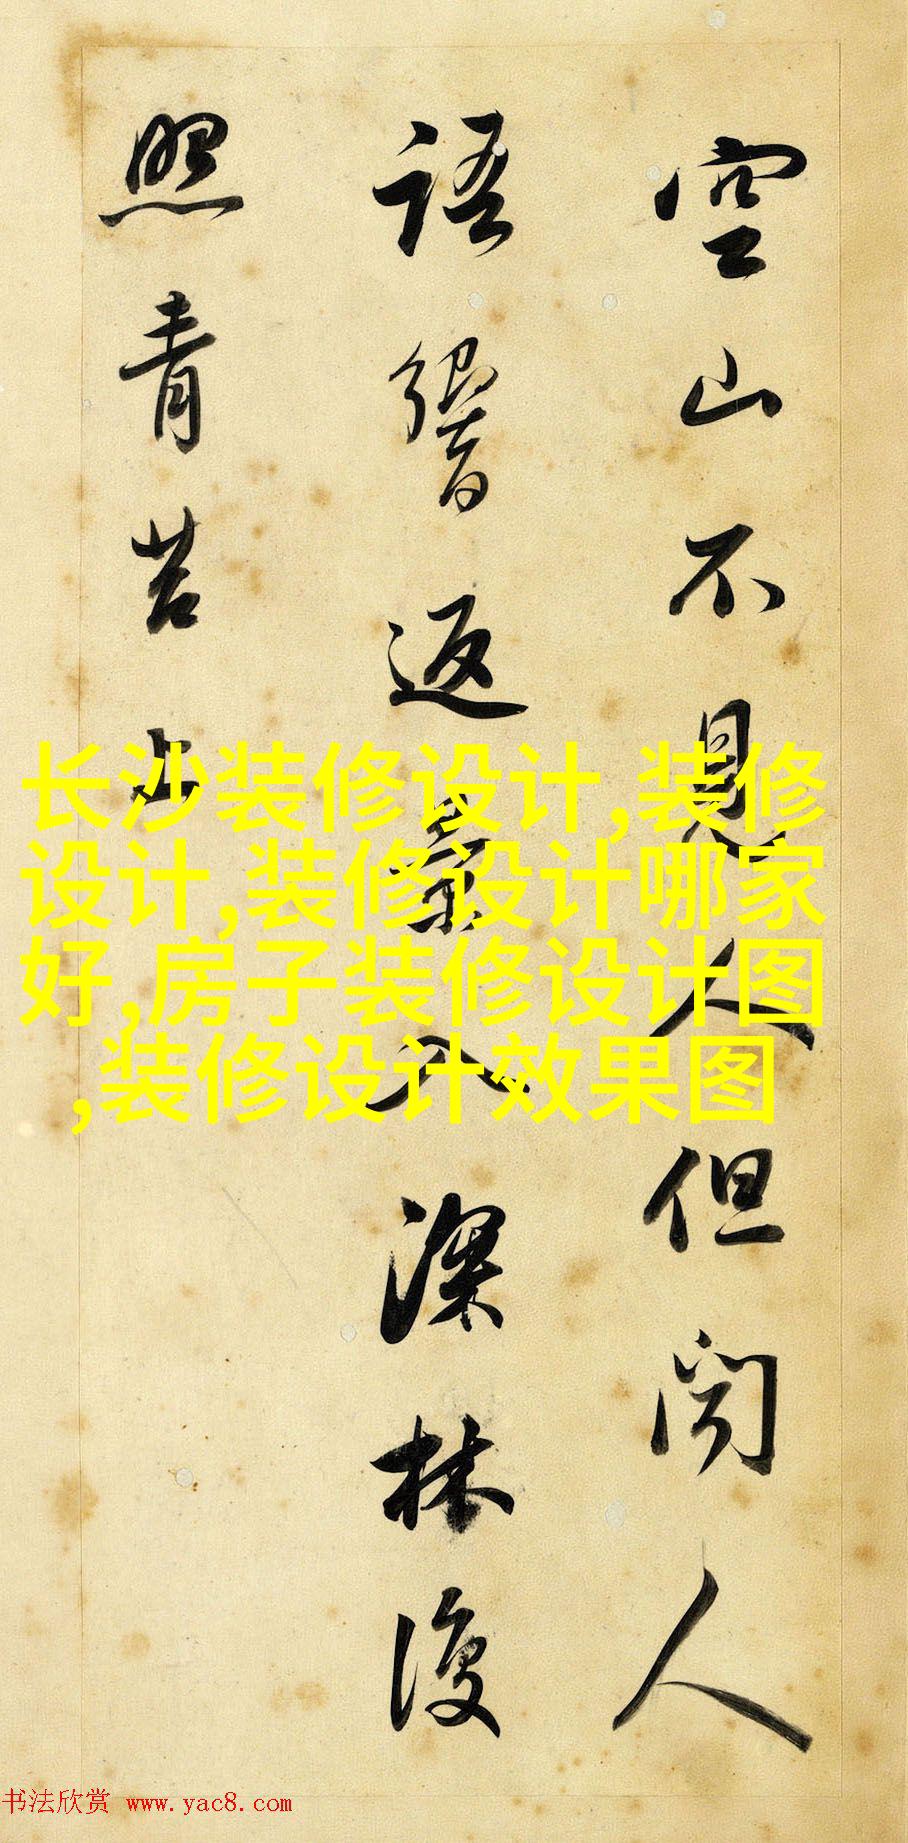 空山不見人但聞人
語響返景入深林復
照青苔上
长沙装修设计,装修
设计,装修设计哪家
好,房子装修设计图
,装修设计效果图
书法欣赏 www.yac8.com